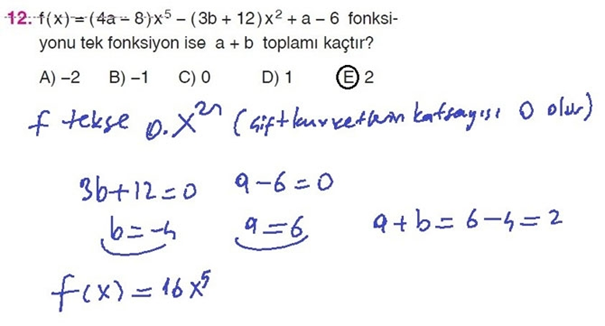 12. f(x) = (4a – 8)x⁵ – (3b + 12)x² + a – 6 fonksi-
yonu tek fonksiyon ise a + b toplamı kaçtır?
A) –2 B) –1 C) 0 D) 1 E) 2
f tekse 0.x²ⁿ (çift kuvvetlerin katsayısı 0 olur)
3b+12=0 a-6=0
b=-4 a=6 a+b=6-4=2
f(x)=16x⁵